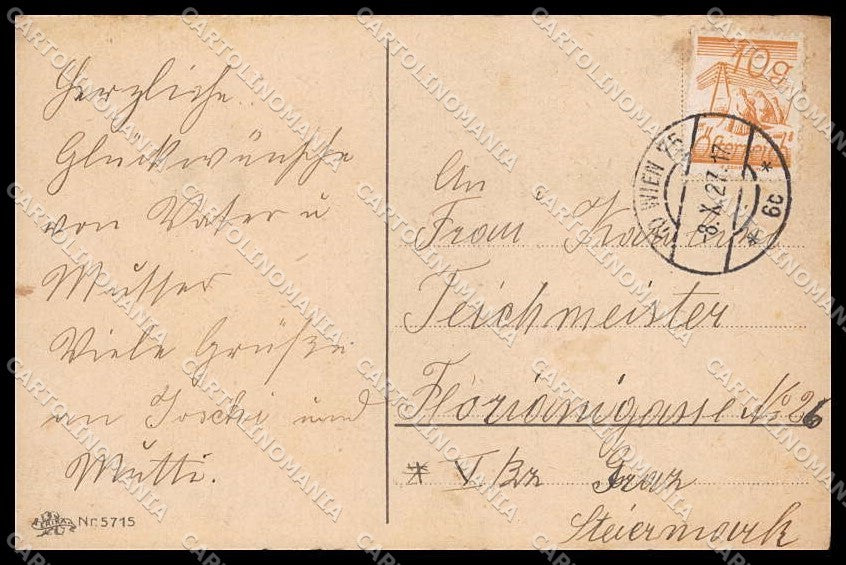 Herzliche
Glückwünsche
von Vater u
Mutter
Viele Grüße
an Joschi und
Mutti.
Nr. 5715
10g
Österreich
WIEN 75
-8.X.27.17
* 6c *
An
Frau
Teichmeister
Florianigasse No 26
* V/Bz Graz
Steiermark
CARTOLINOMANIA